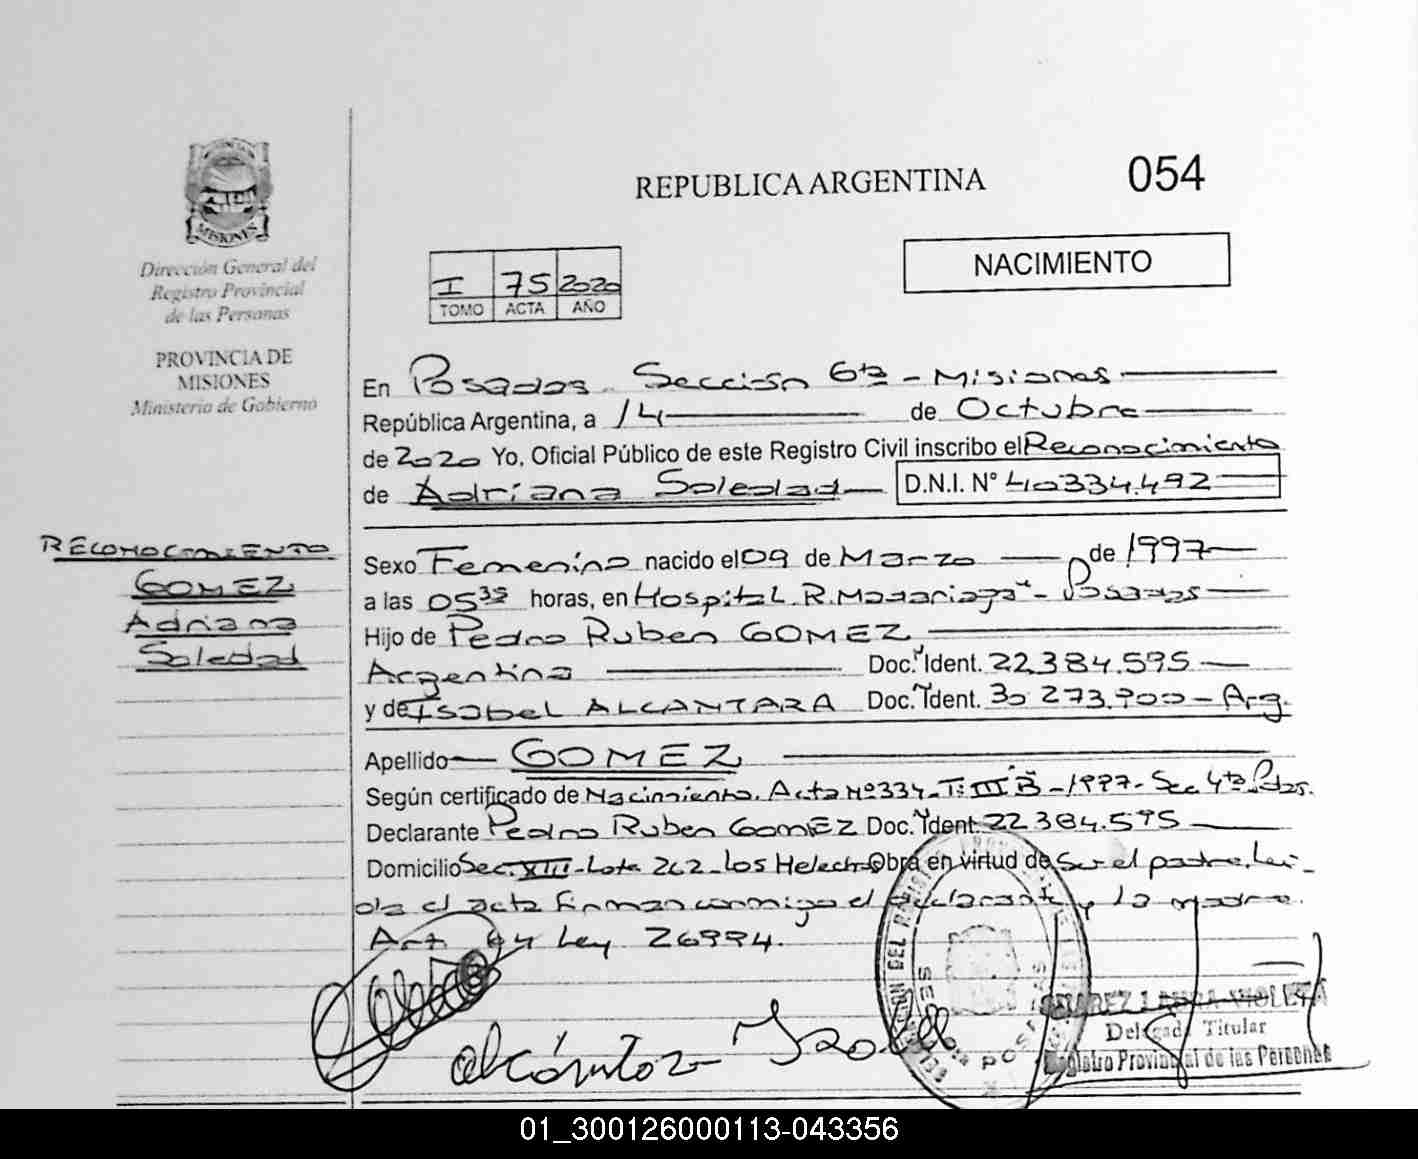 MISIONES
Dirección General del
Registro Provincial
de las Personas
PROVINCIA DE
MISIONES
Ministerio de Gobierno
REPUBLICA ARGENTINA
054
NACIMIENTO
I 75 2020
TOMO ACTA AÑO
En Posadas - Sección 6ta - Misiones
República Argentina, a 14 de Octubre
de 2020 Yo, Oficial Público de este Registro Civil inscribo el Reconocimiento
de Adriana Soledad D.N.I. N° 40334.492
RECONOCIMIENTO
GOMEZ
Adriana
Soledad
Sexo Femenino nacido el 09 de Marzo de 1997
a las 05 35 horas, en Hospital. R. Madariaga - Posadas
Hijo de Pedro Ruben GOMEZ
Argentina Doc. Ident. 22.384.595
y de Isabel ALCANTARA Doc. Ident. 30 273.900 - Arg.
Apellido GOMEZ
Según certificado de Nacimiento. Acta Nº 334 - T: III B - 1997 - Sec 4ta Pdas.
Declarante Pedro Ruben GOMEZ Doc. Ident. 22 384.595
Domicilio Sec. XVIII - Lote 262 - Los Helechos Obra en virtud de Ser el padre. Lei-
da el acta firman conmigo el declarante y la madre.
Art 64 Ley 26994.
alcántara Isabel
SUAREZ LAURA VIOLETA
Delegada Titular
Registro Provincial de las Personas
01_300126000113-043356